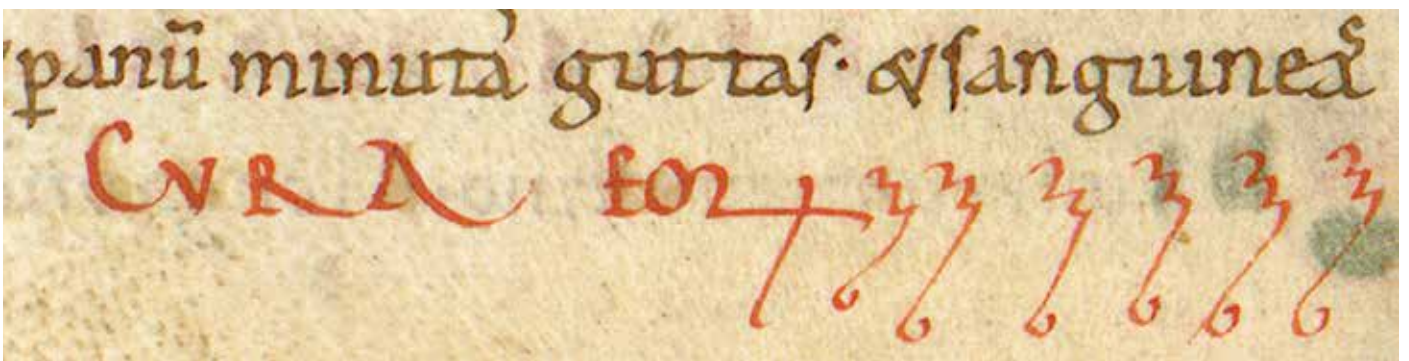 ꝑanū minuta guttas· & sanguineaˢ
CVRA EOꝝ